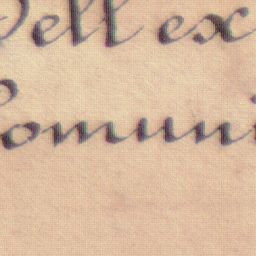 Well ex
Comuni